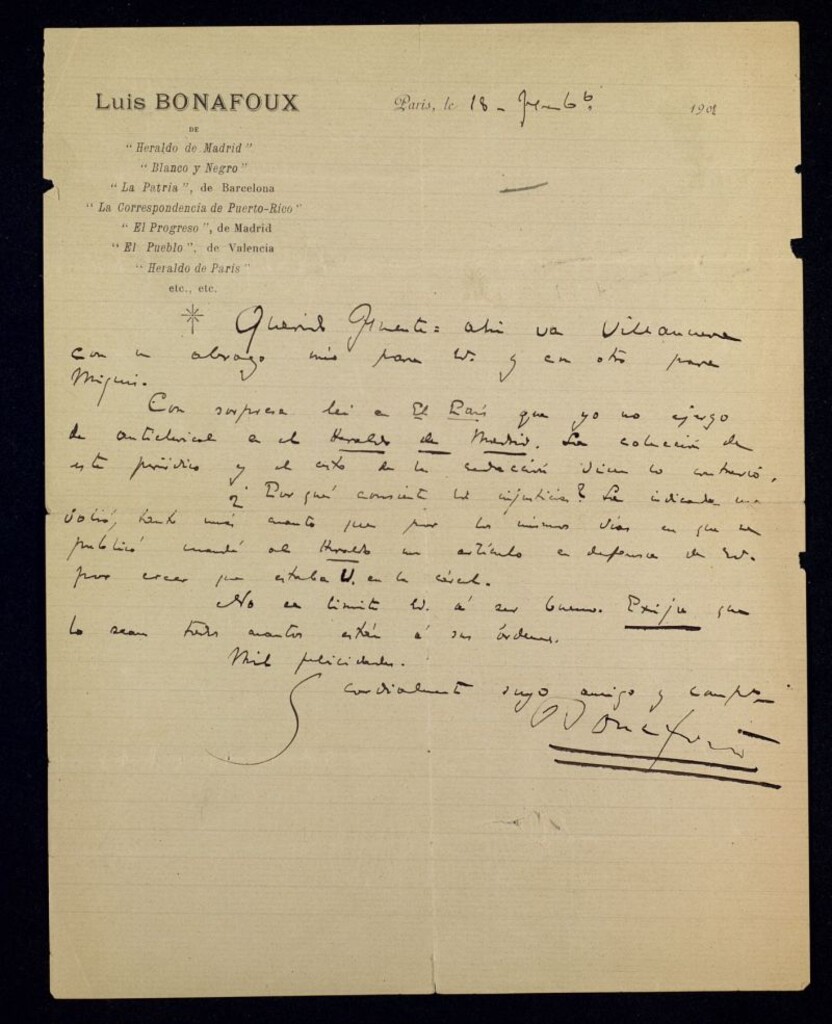 Luis BONAFOUX
DE
" Heraldo de Madrid "
" Blanco y Negro "
" La Patria ", de Barcelona
" La Correspondencia de Puerto-Rico "
" El Progreso ", de Madrid
" El Pueblo ", de Valencia
" Heraldo de Paris "
etc., etc.
Paris, le 18 - 1901
Querido ahi va Villanueva
con un abrazo mio para Vd. y con otro para
Con sorpresa lei en El Pais que yo no ejerzo
de anticlerical en el Heraldo de Madrid. La colección de
este periódico y el de la redacción dicen lo contrario.
¿ Por qué consiente Vd. injusticia? La indicada me
dolió, tanto más cuanto que por los mismos dias en que se
publicó mandé al Heraldo un artículo en defensa de Vd.
por creer que estaba V. en la cárcel.
No se limite Vd. á ser bueno. Exija que
lo sean todos cuantos están á sus órdenes.
Mil felicidades.
Cordialmente suyo amigo y
Bonafoux